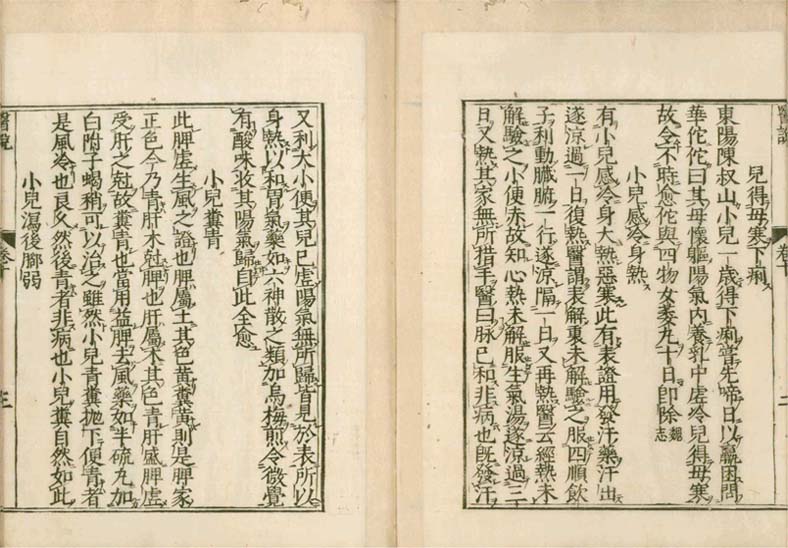 兒得母寒下痢
東陽陳叔山小兒二歲得下痢嘗先啼日以羸困問
華佗佗曰其母懷軀陽氣內養乳中虛冷兒得母寒
故令不時愈佗與四物女菀丸十日卽除魏志
小兒感冷身熱
有小兒感冷身大熱惡寒此有表證用發汗藥汗出
遂涼過一日復熱醫謂表解裏未解驗之服四順飲
子利動臟腑一行遂涼隔一日又再熱醫云經熱未
解驗之小便赤故知心熱未解服生氣湯遂涼過三
日又熱其家無所措手醫曰脉已和非病也旣發汗
醫說
卷十
二
又利大小便其兒已虛陽氣無所歸皆見於表所以
身熱以和胃氣藥如六神散之類加烏梅煎令微覺
有酸味收其陽氣歸自此全愈
小兒糞青
此脾虛生風之證也脾屬土其色黃糞黃則是脾家
正色今乃青肝木尅脾也肝屬木其色青肝盛脾虛
受肝之尅故糞青也當用益脾去風藥如半硫丸加
白附子蝎稍可以治之雖然小兒青糞抛下便青者
是風冷也良久然後青者非病也小兒糞自然如此
小兒瀉後脚弱
醫說
卷十
三